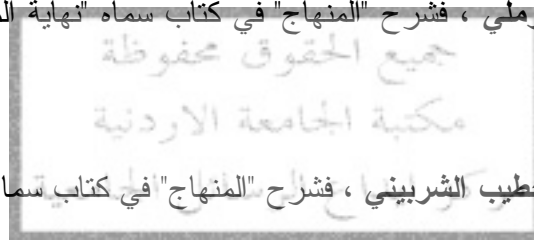 رملي ، فشرح "المنهاج" في كتاب سماه "نهاية ال
جميع الحقوق محفوظة
مكتبة الجامعة الاردنية
خطيب الشربيني ، فشرح "المنهاج" في كتاب سما